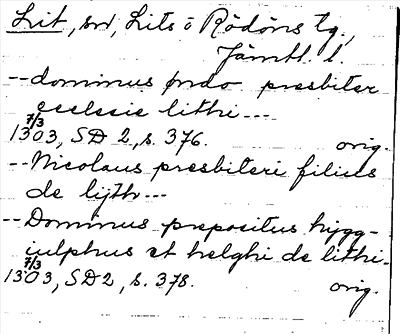 Lit, sn, Lits o Rödöns tg.,
Jämtl. l.
-- dominus pndo presbiter
ecclesie lithi ---
7/3
1303, SD 2, s. 376. orig.
-- Nicolaus presbiteri filius
de lijth ---
-- Dominus prepositus hygg-
iulphus et helghi de lithi -
7/3
1303, SD 2, s. 378. orig.